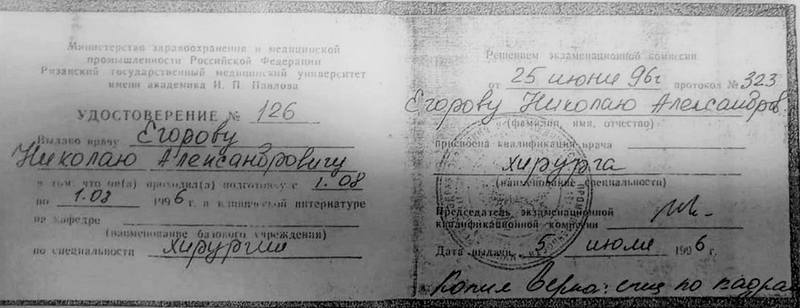 Министерство здравоохранения и медицинской
промышленности Российской Федерации
Рязанский государственный медицинский университет
имени академика И. П. Павлова
УДОСТОВЕРЕНИЕ № 126
Выдано врачу Егорову
Николаю Александровичу
в том, что он(а) проходил(а) подготовку с 1.08
по 1.08 1996 г. в клинической интернатуре
на кафедре
(наименование базового учреждения)
по специальности хирургии
Решением экзаменационной комиссии
от 25 июня 96г протокол № 323
Егорову Николаю Александров
(фамилия, имя, отчество)
присвоена квалификация врача
хирурга
(наименование специальности)
Председатель экзаменационной
квалификационной комиссии
Дата выдачи 5 июля 1996 г.
Копия Верна: спец по кадрам